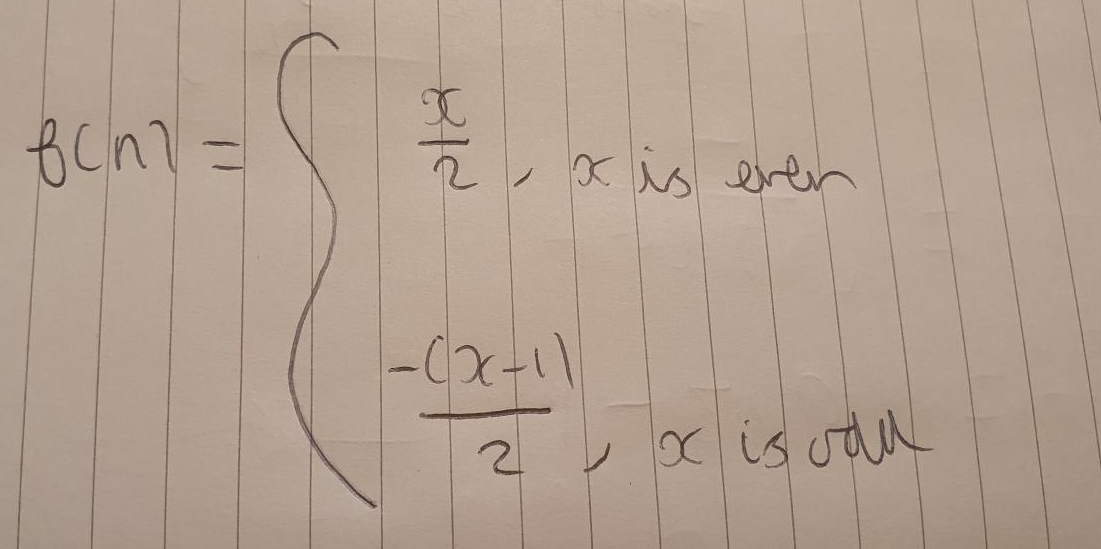 f(n) = { x/2, x is even
-(x-1)/2, x is odd